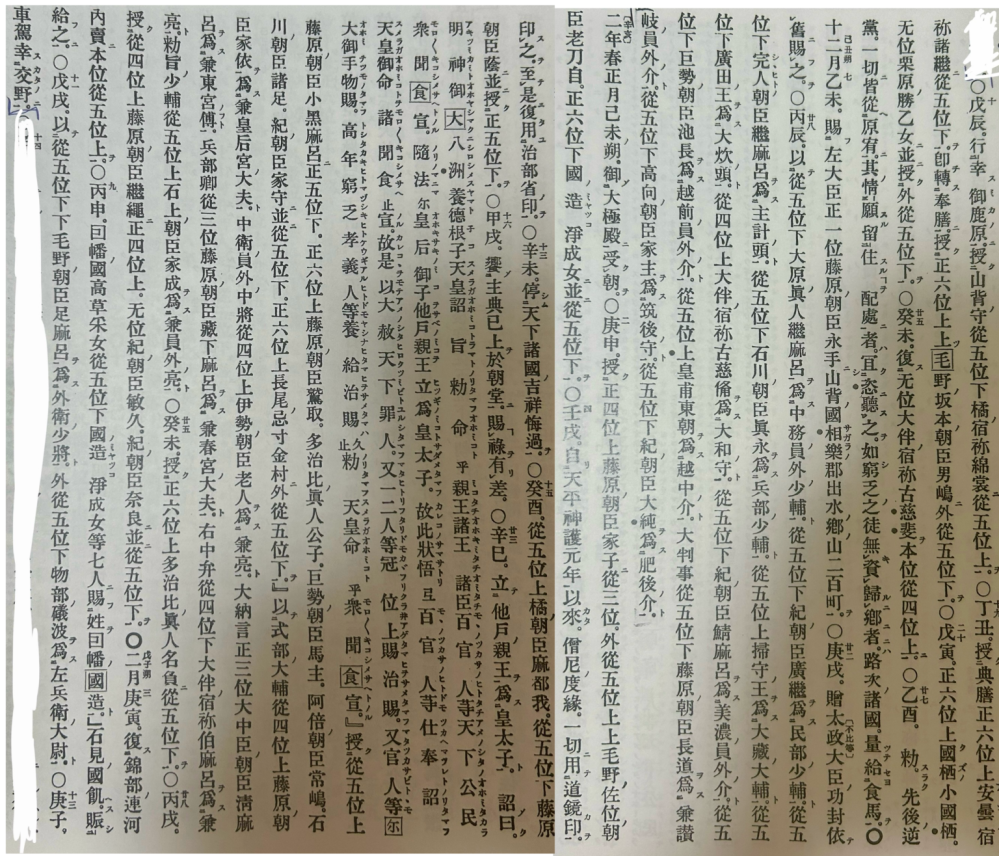 〇戊辰。行幸御鹿原。授山背守從五位下橘宿祢綿裳從五位上。〇丁丑。授典膳正六位上安曇宿
祢諸繼從五位下。卽轉奉膳。授正六位上上毛野坂本朝臣男嶋外從五位下。〇戊寅。正六位上國栖小國栖。
无位栗原勝乙女並授外從五位下。〇癸未。復无位大伴宿祢古慈斐本位從四位上。〇乙酉。勅。先後逆
黨。一切皆從原宥。其情願留住配處者。亘恣聽之。如窮乏之徒無資歸鄕者。路次諸國。量給食馬。〇
十二月乙未。賜左大臣正一位藤原朝臣永手山背國相樂郡出水鄕山二百町。〇庚戌。贈太政大臣功封依
舊賜之。〇丙辰。以從五位下大原眞人繼麻呂爲中務員外少輔。從五位下紀朝臣廣繼爲民部少輔。從五
位下完人朝臣繼麻呂爲主計頭。從五位下石川朝臣眞永爲兵部少輔。從五位上掃守王爲大藏大輔。從五
位下廣田王爲大炊頭。從四位上大伴宿祢古慈俻爲大和守。從五位下紀朝臣鯖麻呂爲美濃員外介。從五
位下巨勢朝臣池長爲越前員外介。從五位上皇甫東朝爲越中介。大判事從五位下藤原朝臣長道爲兼讃
岐員外介。從五位下高向朝臣家主爲筑後守。從五位下紀朝臣大純爲肥後介。
二年春正月己未朔。御大極殿受朝。〇庚申。授正四位上藤原朝臣家子從三位。外從五位上上毛野佐位朝
臣老刀自。正六位下國造淨成女並從五位下。〇壬戌。自天平神護元年以來。僧尼度緣。一切用道鏡印。
印之。至是復用治部省印。〇辛未。停天下諸國吉祥悔過。〇癸酉。從五位上橘朝臣麻都我。從五位下藤原
朝臣蔭並授正五位下。〇甲戌。饗主典已上於朝堂。賜祿有差。〇辛巳。立他戸親王爲皇太子。詔曰。
明神御大八洲養德根子天皇詔旨勅命乎親王諸王諸臣百官人等天下公民
衆聞食宣。隨法尓皇后御子他戸親王立爲皇太子。故此狀悟旦百官人等仕奉詔
天皇御命諸聞食止宣。故是以大赦天下罪人。又一二人等冠位上賜治賜。又官人等尓
大御手物賜。高年窮乏孝義人等養給治賜久止勅天皇命乎衆聞食宣。』授從五位上
藤原朝臣小黑麻呂正五位下。正六位上藤原朝臣鷲取。多治比眞人公子。巨勢朝臣馬主。阿倍朝臣常嶋。石
川朝臣諸足。紀朝臣家守並從五位下。正六位上長尾忌寸金村外從五位下。』以式部大輔從四位上藤原朝
臣家依爲兼皇后宮大夫。中衛員外中將從四位上伊勢朝臣老人爲兼亮。大納言正三位大中臣朝臣淸麻
呂爲兼東宮傅。兵部卿從三位藤原朝臣藏下麻呂爲兼春宮大夫。右中弁從四位下大伴宿祢伯麻呂爲兼
亮。勅旨少輔從五位上石上朝臣家成爲兼員外亮。〇癸未。授正六位上多治比眞人名負從五位下。〇丙戌。
授從四位上藤原朝臣繼繩正四位上。无位紀朝臣敏久。紀朝臣奈良並從五位下。〇二月庚寅。復錦部連河
內賣本位從五位上。〇丙申。曰幡國高草采女從五位下國造淨成女等七人賜姓曰幡國造。』石見國飢。賑
給之。〇戊戌。以從五位下下毛野朝臣足麻呂爲外衛少將。外從五位下物部礒波爲左兵衛大尉。〇庚子。
車駕幸交野。